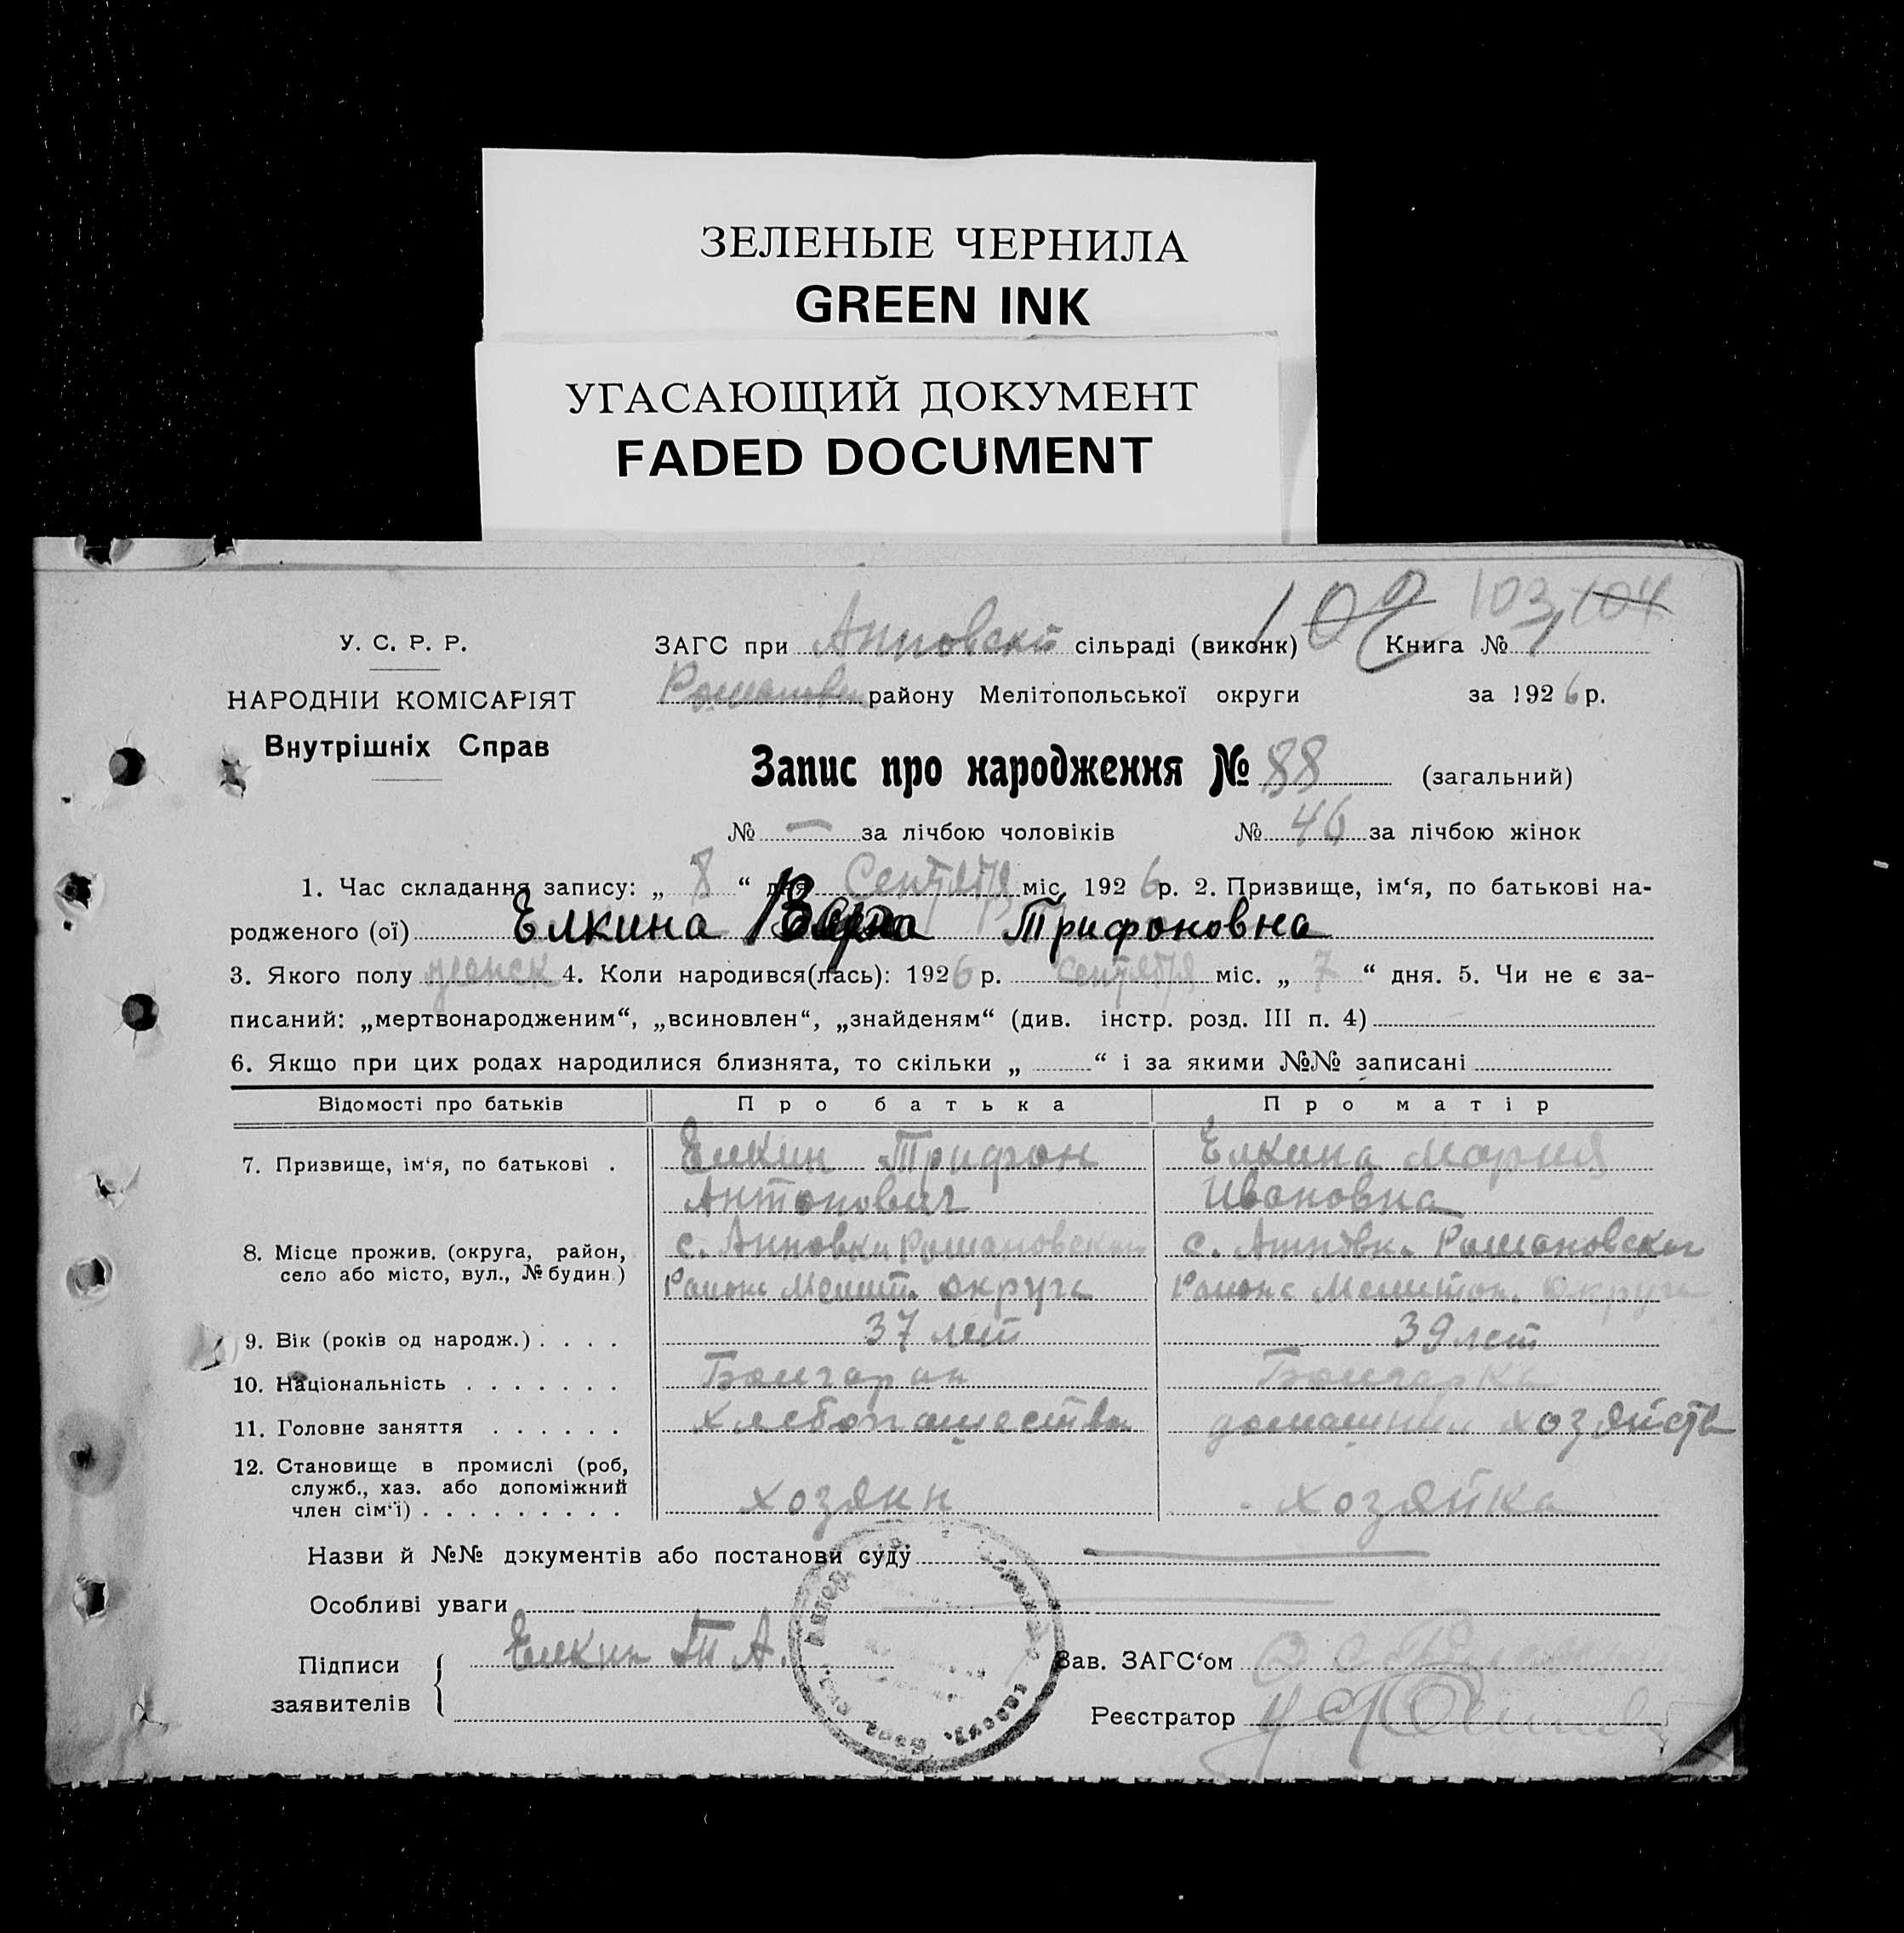 ЗЕЛЕНЫЕ ЧЕРНИЛА
GREEN INK
УГАСАЮЩИЙ ДОКУМЕНТ
FADED DOCUMENT
103, 104
У. С. Р. Р.
ЗАГС при Анновској сільраді (виконк) Книга №
НАРОДНІЙ КОМІСАРІЯТ
району Мелітопольської округи за 1926 р.
Внутрішніх Справ
Запис про народження № 88 (загальний)
№ — за лічбою чоловіків № 46 за лічбою жінок
1. Час складання запису: „ 8 “ дня Сентября міс. 1926 р. 2. Призвище, ім‘я, по батькові на-
родженого (ої) Елкина Вера Трифоновна
3. Якого полу женск 4. Коли народився(лась): 1926 р. сентября міс. „ 7 “ дня. 5. Чи не є за-
писаний: „мертвонародженим“, „всиновлен“, „знайденям“ (див. інстр. розд. III п. 4)
6. Якщо при цих родах народилися близнята, то скільки „ “ і за якими №№ записані
Відомості про батьків Про батька Про матір
7. Призвище, ім‘я, по батькові . Елкин Трифон Антонович Елкина Мария Ивановна
8. Місце прожив. (округа, район, село або місто, вул., № будин.) с. Анновка Романовског Района Мелит. округа с. Анновка Романовског Района Мелитоп. округа
9. Вік (років од народж.) . . . . 37 лет 39 лет
10. Національність . . . . . . . Болгарин Болгарка
11. Головне заняття . . . . . . хлебопашество домашнее хозяйств
12. Становище в промислі (роб, служб., хаз. або допоміжний член сім‘ї) . . . . . . . . . хозяин хозяйка
Назви й №№ документів або постанови суду
Особливі уваги
Підписи заявителів Елкин Т А.
Зав. ЗАГС‘ом
Реєстратор